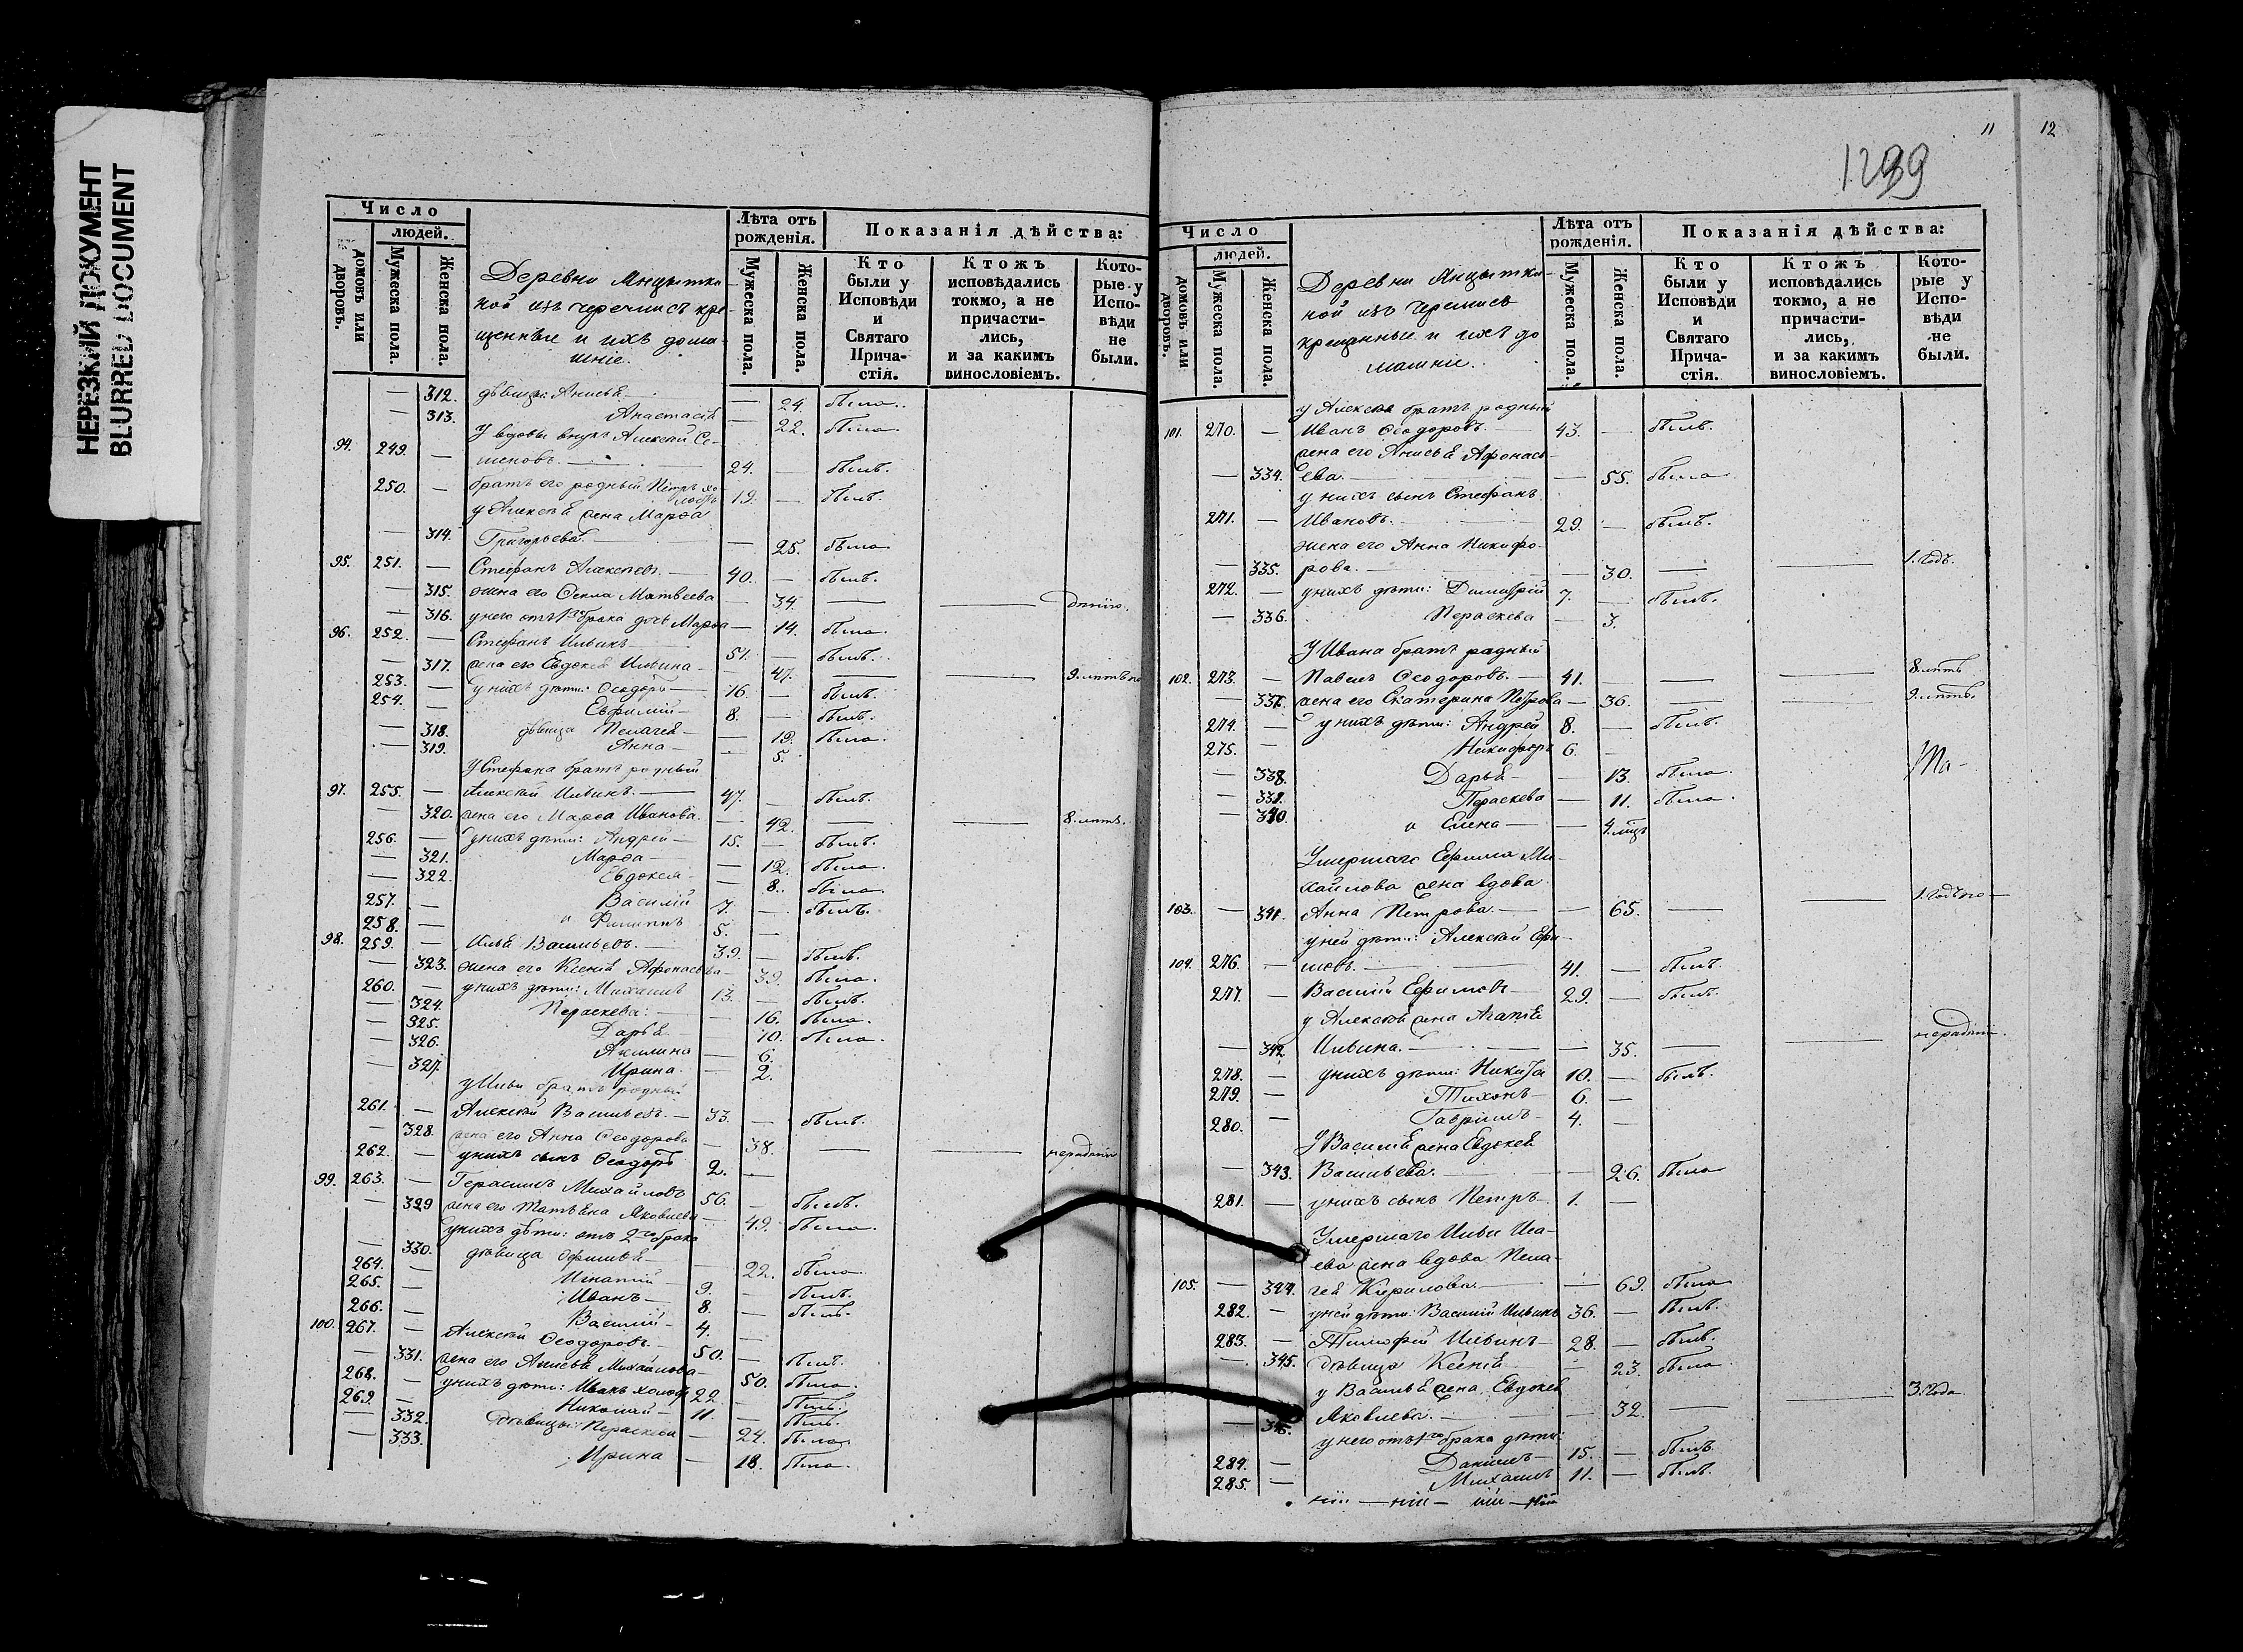 НЕРЕЗКИЙ ДОКУМЕНТ
BLURRED DOCUMENT
11 12
1299
Число
людей.
домовъ или дворовъ.
Мужеска пола.
Женска пола.
Деревни
ной изъ черемисъ кре-
щенные и ихъ дома-
шніе.
Лѣта отъ рожденія.
Мужеска пола.
Женска пола.
Показанія дѣйства:
Кто были у Исповѣди и Святаго Прича-стія.
Ктожъ исповѣдались токмо, а не причасти-лись, и за какимъ винословіемъ.
Кото-рые у Испо-вѣди не были.
— 312. дѣвицы: Анисья — 24. была.
— 313. Анастасія — 22. была.
У вдовы внукъ Алексѣй Се-
94. 249. — меновъ. — 24. — былъ.
250. — братъ его родный Петръ хо
лостъ 19. — былъ.
у Алексѣя жена Марѳа
— 314. Григорьева — 25. была
95. 251. — Стефанъ Алексѣевъ. — 40. — былъ.
— 315. жена его Ѳекла Матвеева — 34. — —
— 316. у него отъ 1го брака дочь Марѳа — 14. была.
96. 252. — Стефанъ Ильинъ 51. — былъ.
— 317. жена его Евдокія Ильина — 47. — — 9. лѣтъ
253. — у нихъ дѣти: Ѳеодоръ — 16. — былъ.
254. — Евфимій — 8. — былъ.
— 318. дѣвица Пелагея — 19. была.
— 319. Анна — — 5.
У Стефана братъ родный
97. 255. — Алексѣй Ильинъ. — 47. — былъ.
— 320. жена его Марѳа Иванова. — 42. — — 8. лѣтъ.
256. — у нихъ дѣти: Андрей — 15. — былъ.
— 321. Марѳа — — 12. была.
— 322. Евдокея — — 8. была.
257. — Василій 7. — былъ.
258. — и Филиппъ 5. —
98. 259. — Илья Васильевъ. — 39. — былъ.
— 323. жена его Ксенія Афонасьева — 39. была.
260. — у нихъ дѣти: Михаилъ 13. — былъ.
— 324. Пераскева: — — 16. была.
— 325. Дарья — 10. была.
— 326. Акилина — 6.
— 327. Ирина. — 2.
у Ильи братъ родный
261. — Алексѣй Васильевъ. — 33. — былъ.
— 328. жена его Анна Ѳеодорова — 38. — —
262. — у нихъ сынъ Ѳеодоръ 2. —
99. 263. — Герасимъ Михайловъ 56. — былъ.
— 329 жена его Татьяна Яковлева — 49. была.
у нихъ дѣти: отъ 2го брака
— 330. дѣвица Офимія — — 22. была
264. — Игнатій — 9. — былъ.
265. — Иванъ — 8. — былъ.
266. — Василій — 4. —
100. 267. — Алексѣй Ѳеодоровъ. — 50. — былъ.
— 331. жена его Анисья Михайлова — 50. была.
268. — у нихъ дѣти: Иванъ холостъ 22. — былъ.
269. — Николай — 11. — былъ.
— 332. дѣвицы: Пераскева — 24. была.
— 333. Ирина — 18. была.
Число
людей.
домовъ или дворовъ.
Мужеска пола.
Женска пола.
Деревни
ной изъ черемисъ
крещенные и ихъ до
машніе.
Лѣта отъ рожденія.
Мужеска пола.
Женска пола.
Показанія дѣйства:
Кто были у Исповѣди и Святаго Прича-стія.
Ктожъ исповѣдались токмо, а не причасти-лись, и за какимъ винословіемъ.
Кото-рые у Испо-вѣди не были.
у Алексѣя братъ родный
101. 270. — Иванъ Ѳеодоровъ. — 43. — былъ.
жена его Анисья Афонась-
— 334. ева. — — 55. была
у нихъ сынъ Стефанъ
271. — Ивановъ. — 29. — былъ.
жена его Анна Никифо-
— 335. рова. — — 30. — — 1. годъ.
272. — у нихъ дѣти: Димитрій 7. — былъ.
— 336. Пераскева — 3.
У Ивана братъ родный
102. 273. — Павелъ Ѳеодоровъ. — 41. — — — 8. лѣтъ
— 337. жена его Екатерина Петрова — 36. — — 9. лѣтъ.
274. — у нихъ дѣти: Андрей 8. — былъ.
275. — Никифоръ 6. —
— 338. Дарья — — 13. была.
— 339. Пераскева — 11. была.
— 340. и Елена — — 4. мцъ
Умершаго Ефима Ми-
хайлова жена вдова
103. — 341. Анна Петрова. — — 65. — —
у ней дѣти: Алексѣй Ефи-
104. 276. — мовъ. — 41. — былъ.
277. — Василій Ефимовъ — 29. — былъ.
у Алексѣя жена Агапія
— 342. Ильина. — — 35. — —
278. — у нихъ дѣти: Никита 10. — былъ.
279. — Тихонъ — 6. —
280. — Гавріилъ — 4. —
У Василія жена Евдокея
— 343. Васильева. — — 26. была
281. — у нихъ сынъ Петръ — 1. —
Умершаго Ильи Иса-
ева жена вдова Пела-
105. — 344. гея Кирилова — — 69. была
282. — у ней дѣти: Василій Ильинъ 36. — былъ.
283. — Тимофей Ильинъ — 28. — былъ.
— 345. дѣвица Ксенія — — 23. была
у Василья жена Евдокея
— 346. Яковлева. — — 32. — — 3. года
у него отъ 1го брака дѣти:
284. — Даніилъ — 15. — былъ.
285. — Михаилъ 11. — былъ.